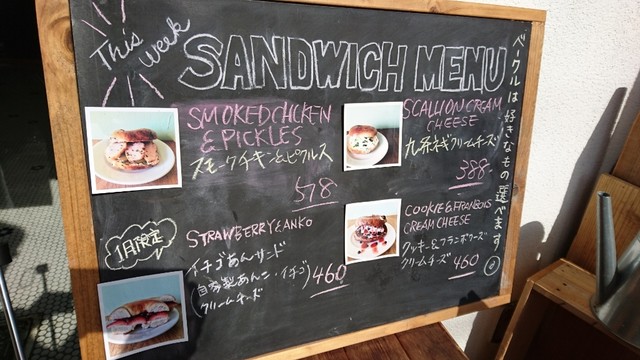 This
week
SANDWICH MENU
SMOKED CHICKEN
& PICKLES
スモークチキン&ピクルス
578
SCALLION CREAM
CHEESE
九条ネギクリームチーズ
388
1月限定
STRAWBERRY & ANKO
イチゴあんサンド
(自家製あんこ・イチゴ)
クリームチーズ
460
COOKIE & FRANBOIS
CREAM CHEESE
クッキー&フランボワーズ
クリームチーズ 450
ベーグルは好きなもの選べます